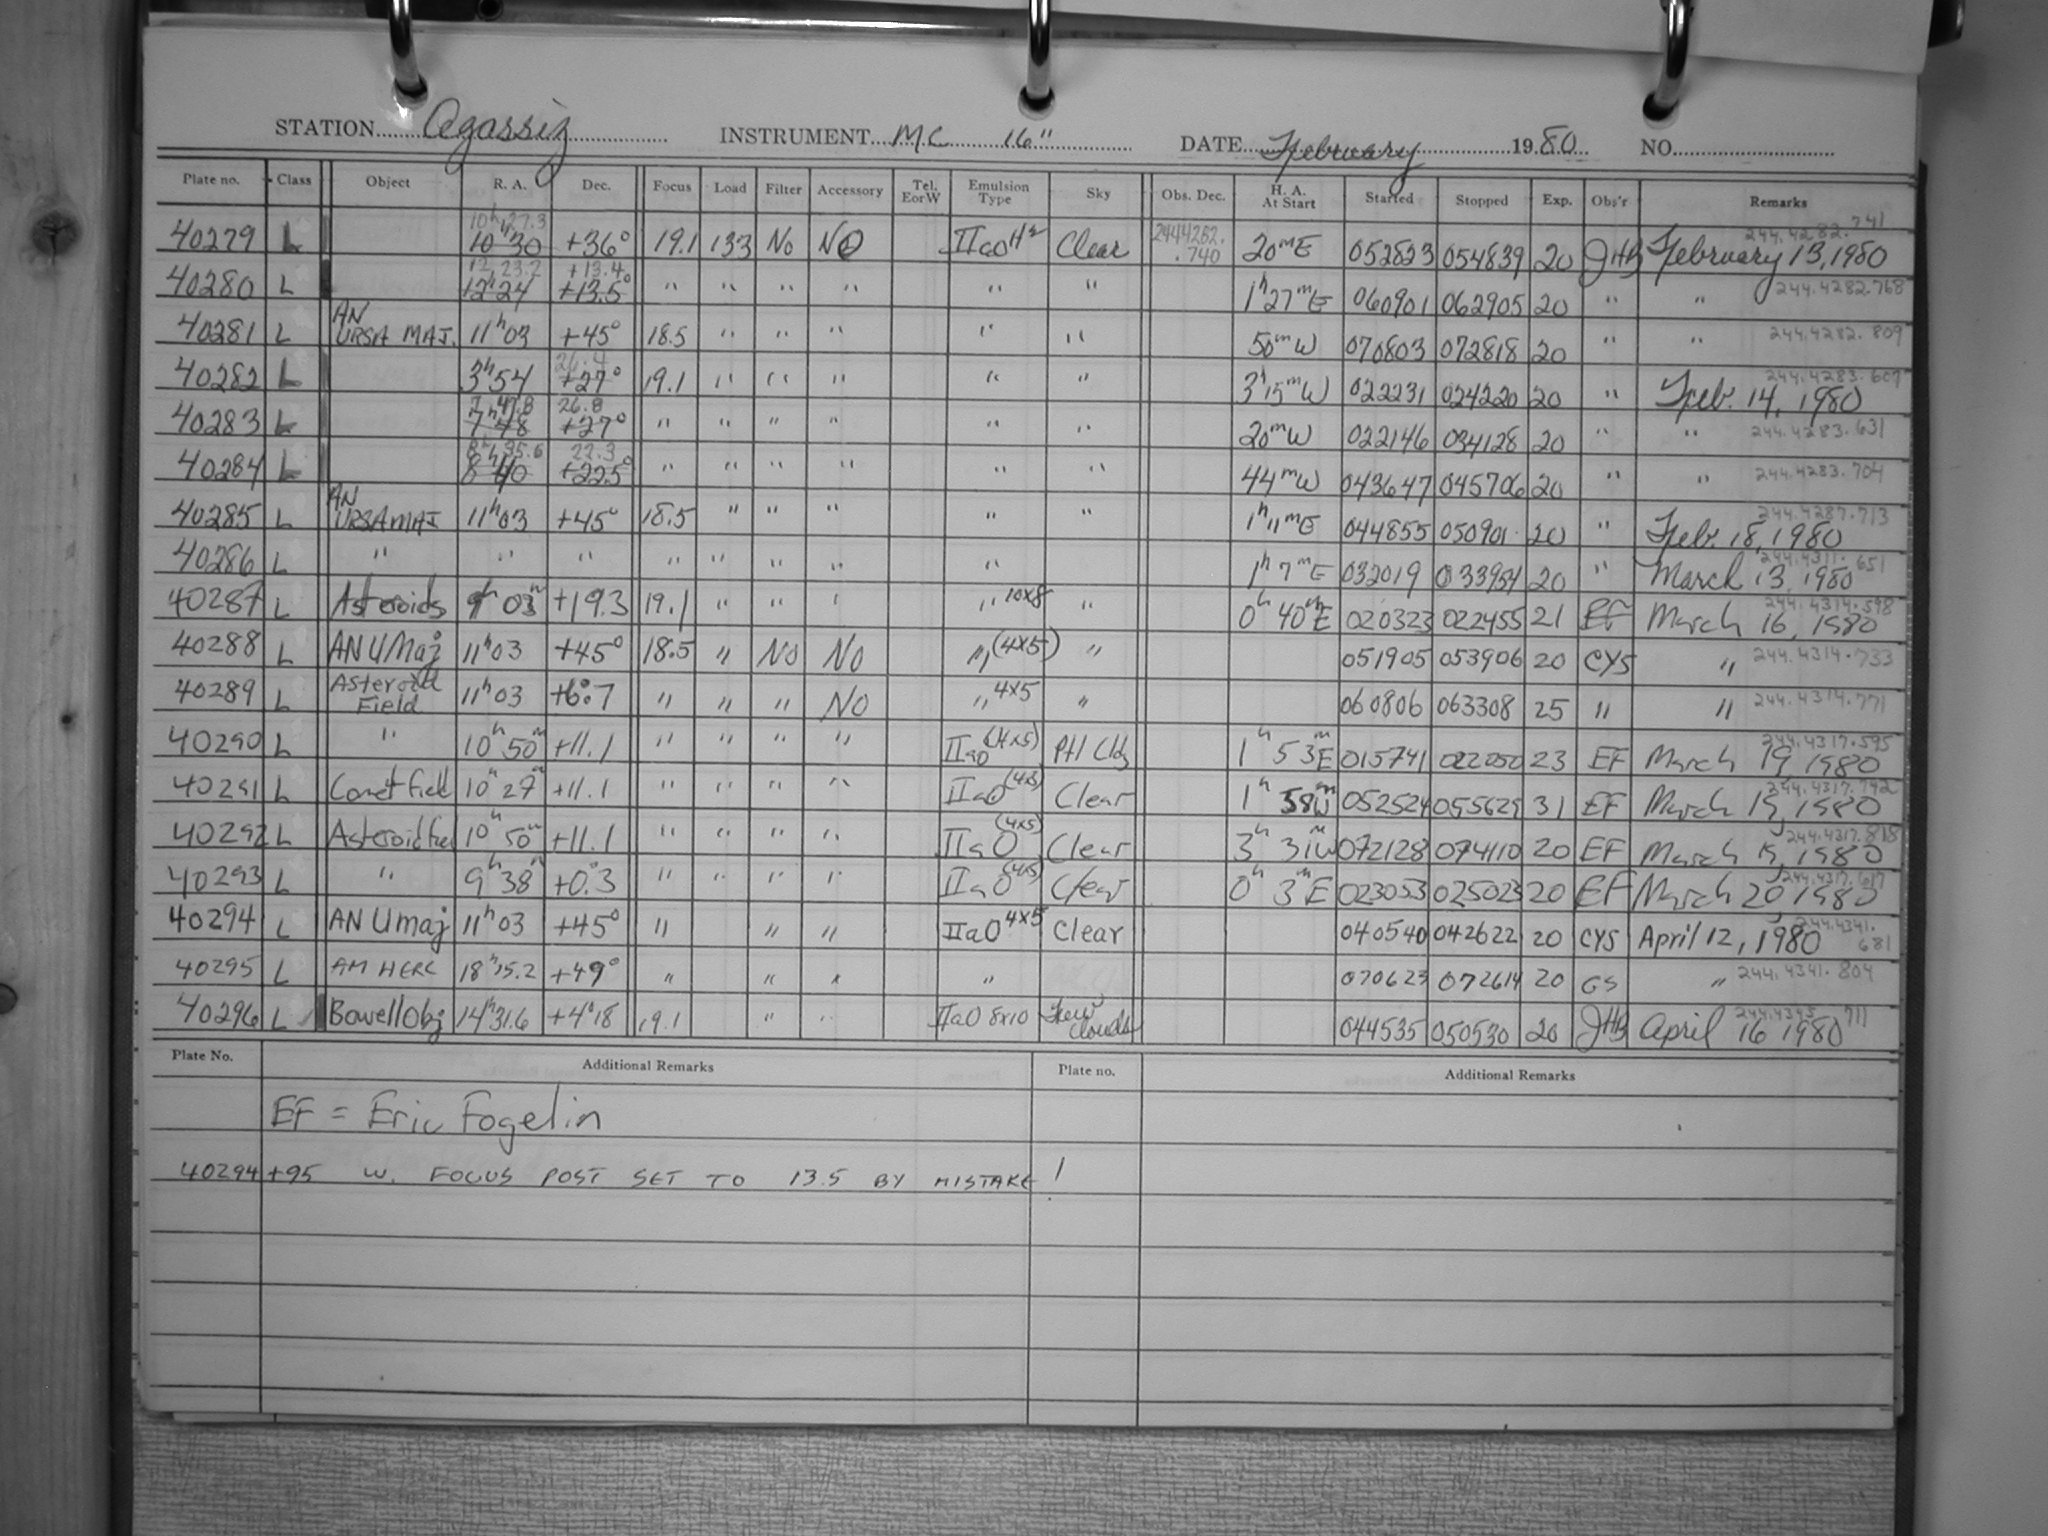 STATION Agassiz INSTRUMENT MC 16" DATE February 1980 NO.
Plate no. Class Object R. A. Dec. Focus Load Filter Accessory Tel. EorW Emulsion Type Sky Obs. Dec. H. A. At Start Started Stopped Exp. Obs'r Remarks
40279 L 10h 27.3 10h30 +36° 19.1 133 No NO IIaO Clear 2444282.740 20mE 052823 054839 20 JHB February 13, 1980 244.4282.741
40280 L 12 23.2 +13.4 12h24 +13.5° " " " " " " 1h27mE 060901 062905 20 " " 244.4282.768
40281 L AN URSA MAJ. 11h03 +45° 18.5 " " " " " 50mW 070803 072818 20 " " 244.4282.809
40282 L 3h54 26.4 +27° 19.1 " " " " " 3h15mW 022231 024220 20 " Feb. 14, 1980 244.4283.607
40283 L 7 47.8 26.8 7h48 +27° " " " " " " 20mW 022146 034128 20 " " 244.4283.631
40284 L 8h 35.6 22.3 8h40 +22.5° " " " " " " 44mW 043647 045706 20 " " 244.4283.704
40285 L AN URSA MAJ 11h03 +45° 18.5 " " " " " 1h11mE 044855 050901 20 " Feb. 18, 1980 244.4287.713
40286 L " " " " " " " " 1h 7mE 032019 033954 20 " March 13, 1980 244.4311.651
40287 L Asteroids 9h 03m +19.3 19.1 " " ' " 10x8 " 0h 40mE 020323 022455 21 EF March 16, 1980 244.4314.598
40288 L AN UMaj 11h03 +45° 18.5 " NO No " (4x5) " 051905 053906 20 CYS " 244.4314.733
40289 L Asteroid Field 11h03 +6°.7 " " " NO " 4x5 " 060806 063308 25 " " 244.4314.771
40290 L " 10h 50m +11.1 " " " " IIaO (4x5) Ptl Cldy 1h 53mE 015741 022050 23 EF March 19, 1980 244.4317.595
40291 L Comet field 10h 27m +11.1 " " " " IIaO (4x5) Clear 1h 58mW 052524 055629 31 EF March 19, 1980 244.4317.742
40292 L Asteroid fie 10h 50m +11.1 " " " " IIaO (4x5) Clear 3h 31mW 072128 074110 20 EF March 19, 1980 244.4317.818
40293 L " 9h 38m +0.3 " " " " IIaO (4x5) Clear 0h 3mE 023053 025023 20 EF March 20, 1980 244.4317.617
40294 L AN Umaj 11h03 +45° " " " IIaO 4x5 Clear 040540 042622 20 CYS April 12, 1980 244.4341.681
40295 L AM HERC 18h15.2 +49° " " " " 070623 072614 20 GS " 244.4341.804
40296 L Bowell Obj 14h31.6 +4°18 19.1 " " IIaO 8x10 Few clouds 044535 050530 20 JHB April 16 1980 244.4345.711
Plate No. Additional Remarks Plate no. Additional Remarks
EF = Eric Fogelin
40294 +95 W. FOCUS POST SET TO 13.5 BY MISTAKE!